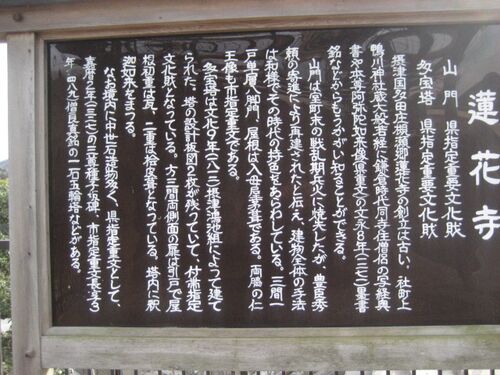 蓮花寺
山門 県指定重要文化財
多宝塔 県指定重要文化財
摂津国多田庄槻瀬郷蓮花寺の創立は古い。社町上
鴨川神社蔵大般若経に鎌倉時代同寺住僧侶の写経奥
書や本尊阿弥陀如来像(県重文)の文永8年(一二七一)墨書
銘などからもうかがい知ることができる。
山門は室町末の戦乱期兵火に焼失したが、豊臣秀
頼の寄進により再建されたと伝え、建物全体の手法
は和様でその時代の特色をあらわしている。三間一
戸単層八脚門、屋根は入母屋茅葺である。両脇の仁
王像も市指定重文である。
多宝塔は文化9年(一八一二)摂津鴻池組によって建て
られた。塔の設計板図2枚が残っていて、付箋指定
文化財となっている。方三間両側面の扉は引戸で屋
根初重は瓦、二重は桧皮葺となっている。塔内に釈
迦如来をまつる。
なお境内に中世石造物多く、県指定重文として、
嘉暦2年(一三二七)の三尊種子板碑、市指定重文長享3
年(一四八九)僧良真銘の一石五輪塔などがある。